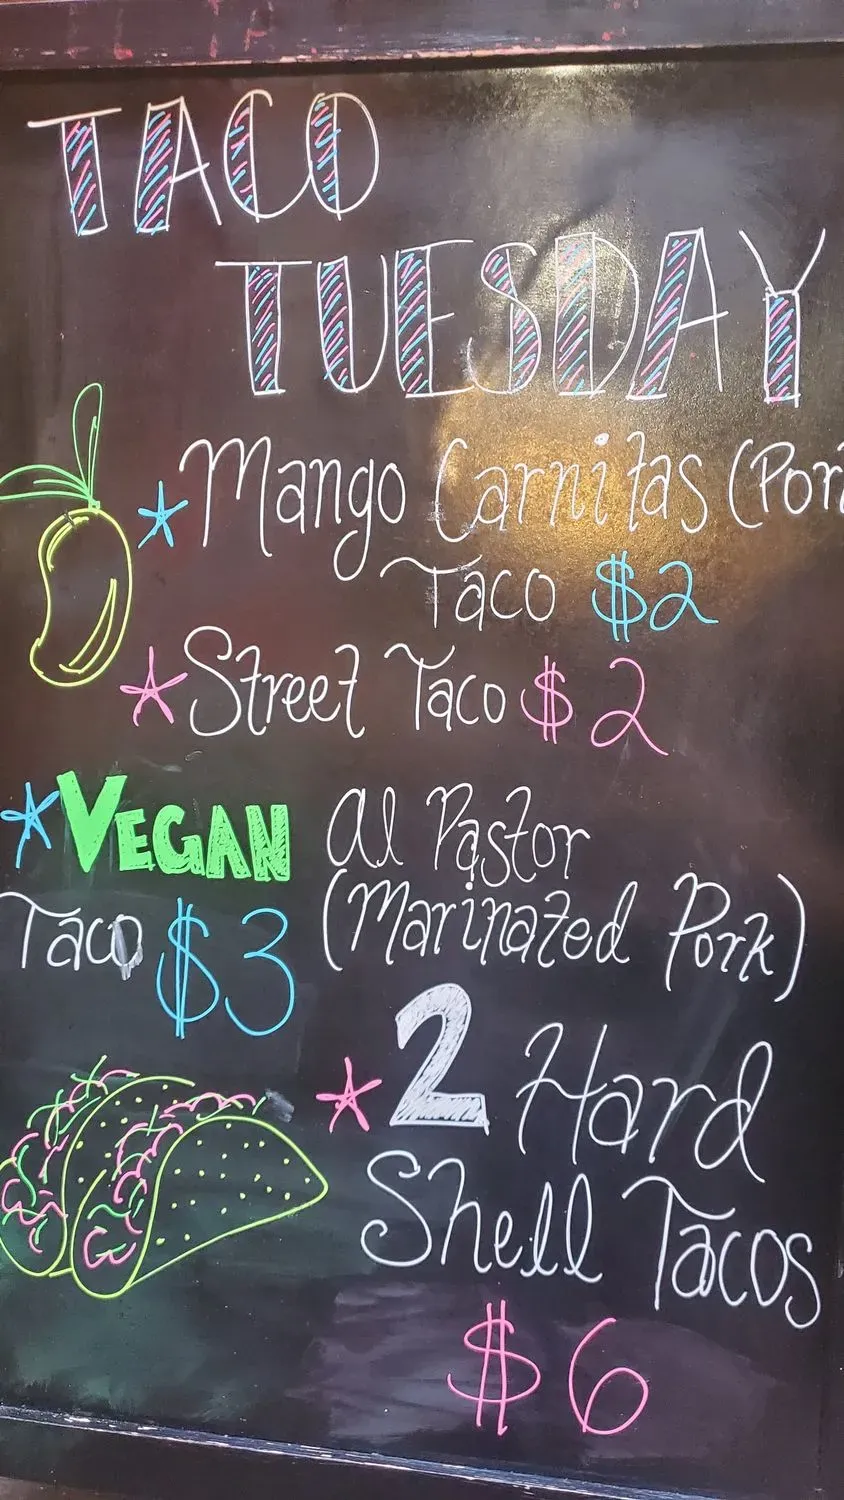 TACO
TUESDAY
Mango Carnitas (Por
Taco $2
Street Taco $2
VEGAN Al Pastor
Taco $3 (Marinated Pork)
2 Hard
Shell Tacos
$6